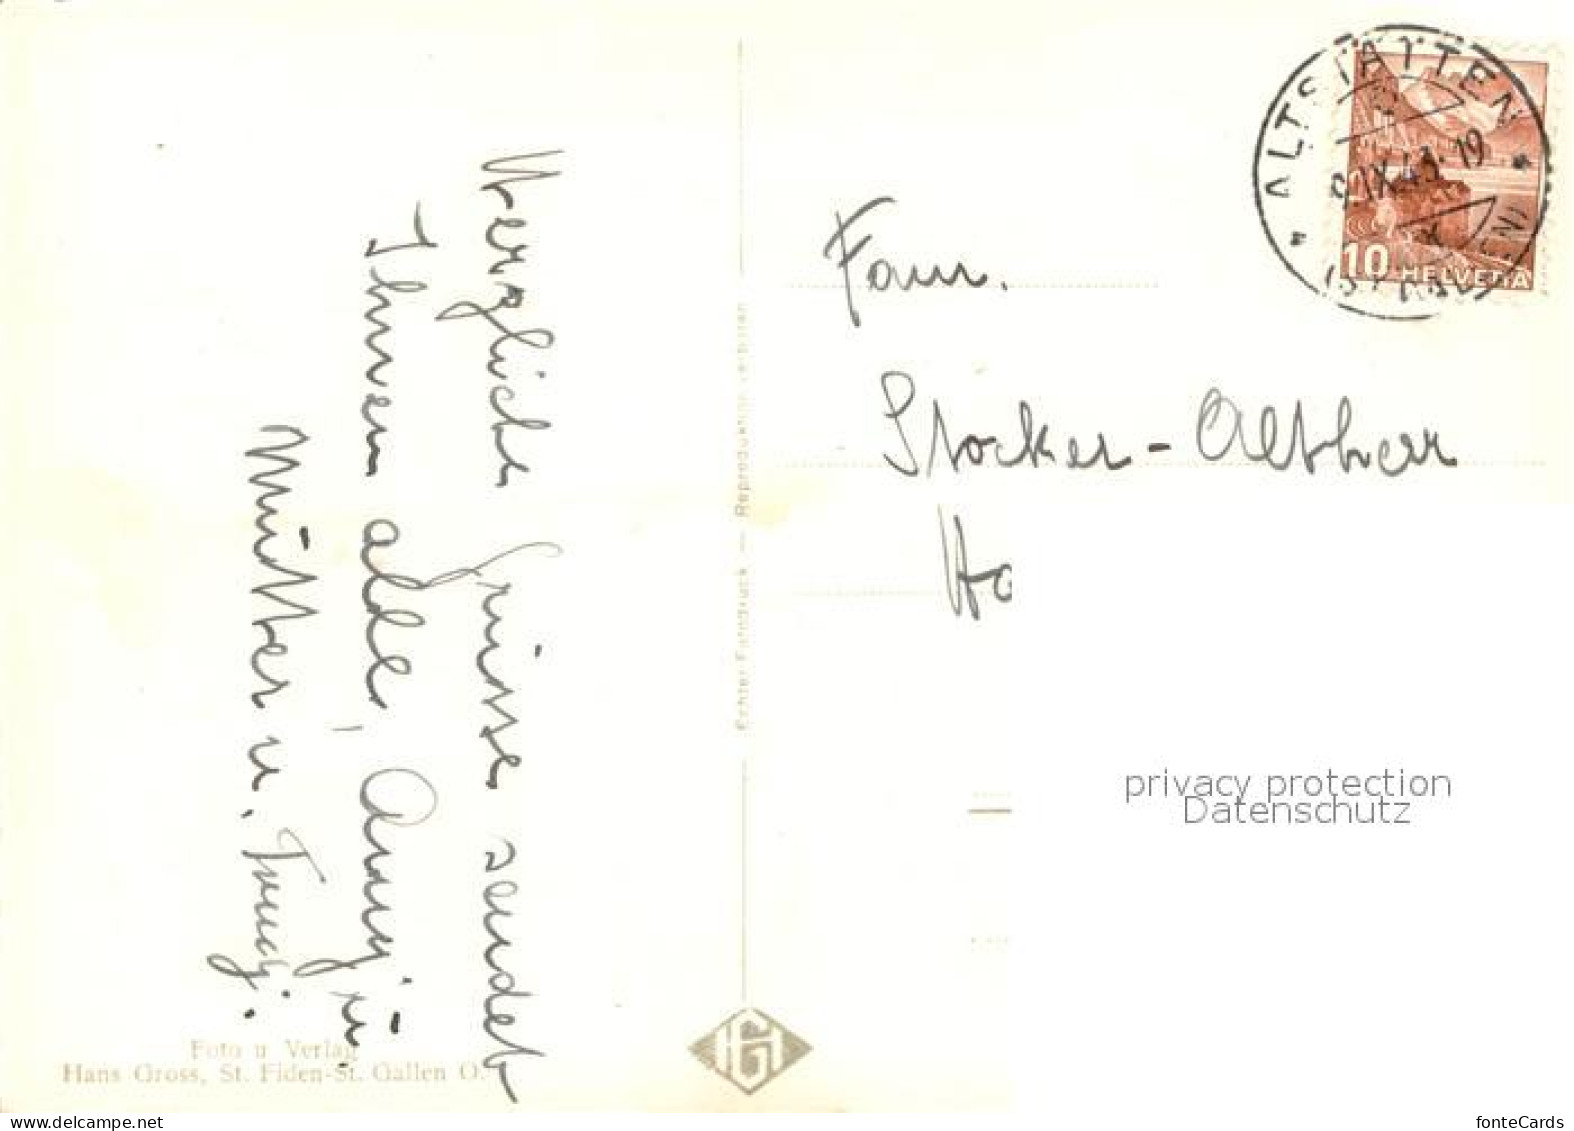 Herzliche Grüsse sendet
Ihnen alle, Anny ü
Mutter u.
Foto u Verlag
Hans Gross, St. Fiden-St. Gallen O.
Echter Fotodruck — Reproduktion verboten
ALTSTÄTTEN
9.IX.43.19
(ST. GALLEN)
10 HELVETIA
Fam.
Stocker-Altherr
Ho
privacy protection
Datenschutz
fonteCards